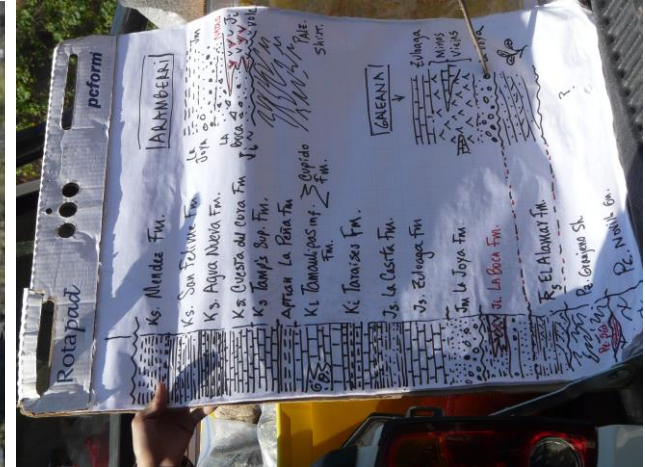 Rotapad
pcform
ARAMBERRI
Ks. Mendez Fm.
Ks. San Felipe Fm
Ks. Agua Nueva Fm
Ks. Cuesta del Cura Fm
Ks Tamps Sup. Fm.
Aptian La Peña Fm
Ki Tamaulipas inf. Fm.
Cupido Fm.
Ki Taraises Fm.
Js La Casita Fm.
Js. Zuloaga Fm
Jm La Joya Fm
Ji. La Boca Fm.
Rs El Alamar Fm.
Pz. Granjeno Sh
Pc. Novillo Gn.
La Joya
Jm
La Boca
Ji
vol.
Pale.
GALEANA
Zuloaga
Minas Viejas
?